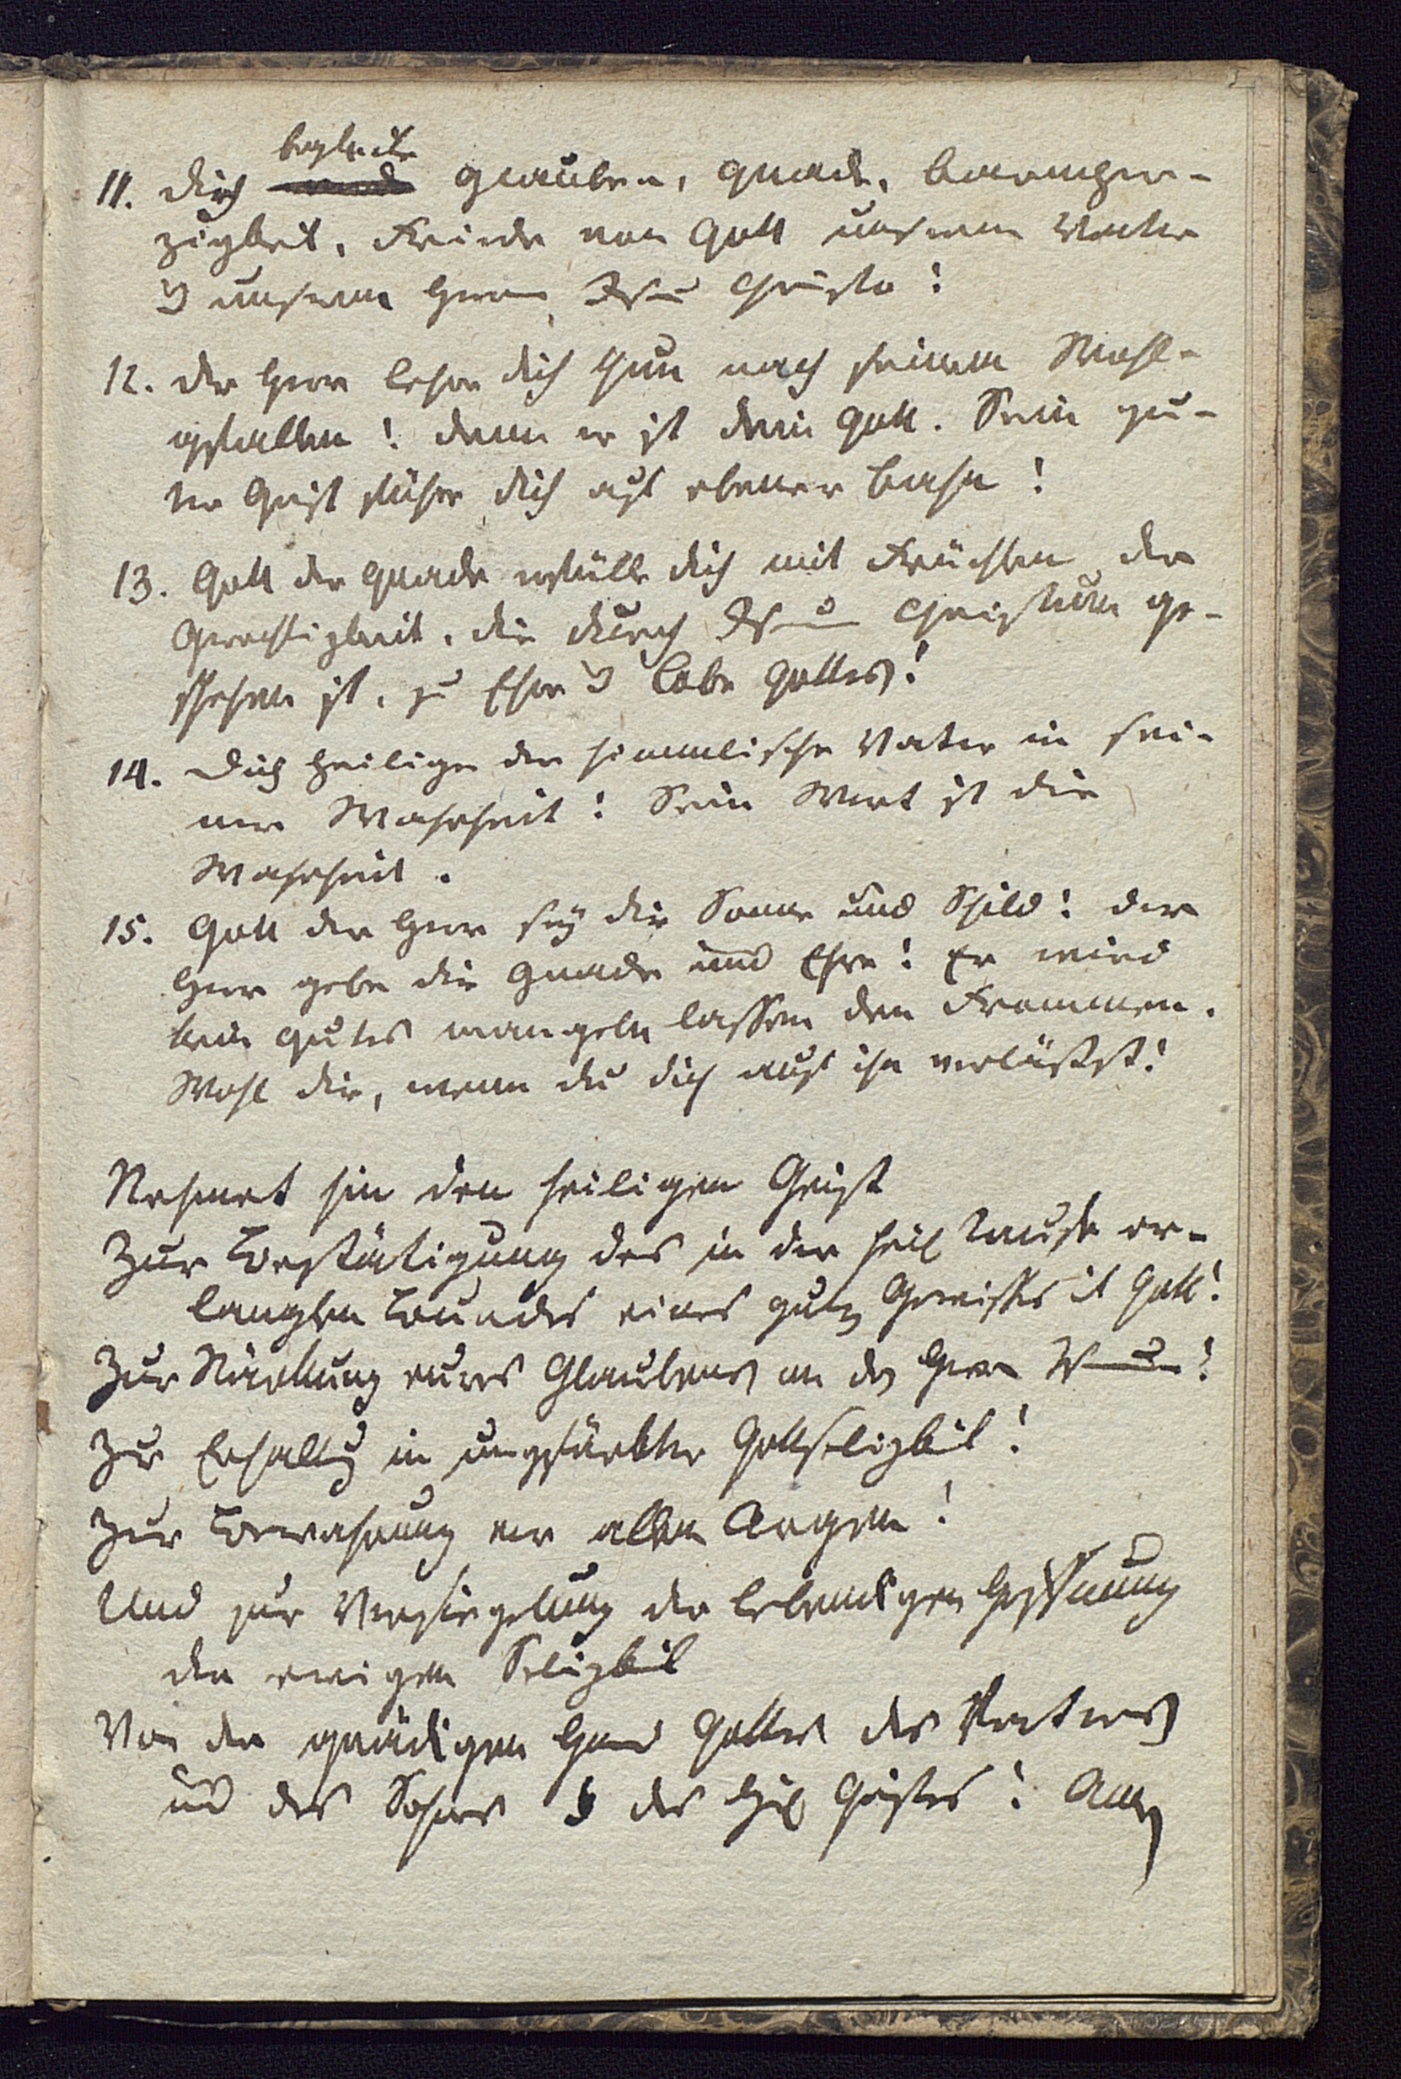 begleite
11. Dich Glauben, Gnade, Barmher-
zigkeit, Friede von Gott unserem Vater
u unserem Herrn Jesu Christo!
12. Der Herr lehre dich thun nach seinem Wohl-
gefallen! denn er ist dein Gott. Sein gu-
ter Geist führe dich auf ebener Bahn!
13. Gott der Gnade erfülle dich mit Früchten der
Gerechtigkeit, die durch Jesum Christum ge-
schehen ist, zu Ehre u Lobe Gottes!
14. Dich heilige der himmlische Vater in sei-
ner Wahrheit! Sein Wort ist die
Wahrheit.
15. Gott der Herr sey dir Sonne und Schild! der
Herr gebe dir Gnade und Ehre! Er wird
kein Gutes mangeln lassen den Frommen.
Wohl dir, wenn du dich auf ihn verläßst!
Nehmet hin den heiligen Geist
Zur Bestätigung des in der heil Taufe er-
langten Bundes eines guten Gewissens mit Gott!
Zur Stärkung eures Glaubens an den Herrn Jesum!
Zur Erhaltung in ungefärbter Gottseligkeit!
Zur Bewahrung vor allem Argen!
Und zur Versiegelung der lebendigen Hoffnung
der ewigen Seligkeit
Von der gnädigen Hand Gottes des Vaters
und des Sohnes u des Heil Geistes! Amen